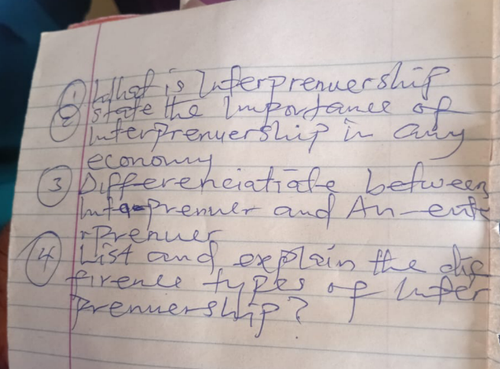 ① What is Interprenuership
② State the Importance of
Interprenuership in any
economy
③ Differenciatiate between
Int-prenuer and An-ent
rprenuer
④ List and explain the dif
firence types of Inter
prenuership?